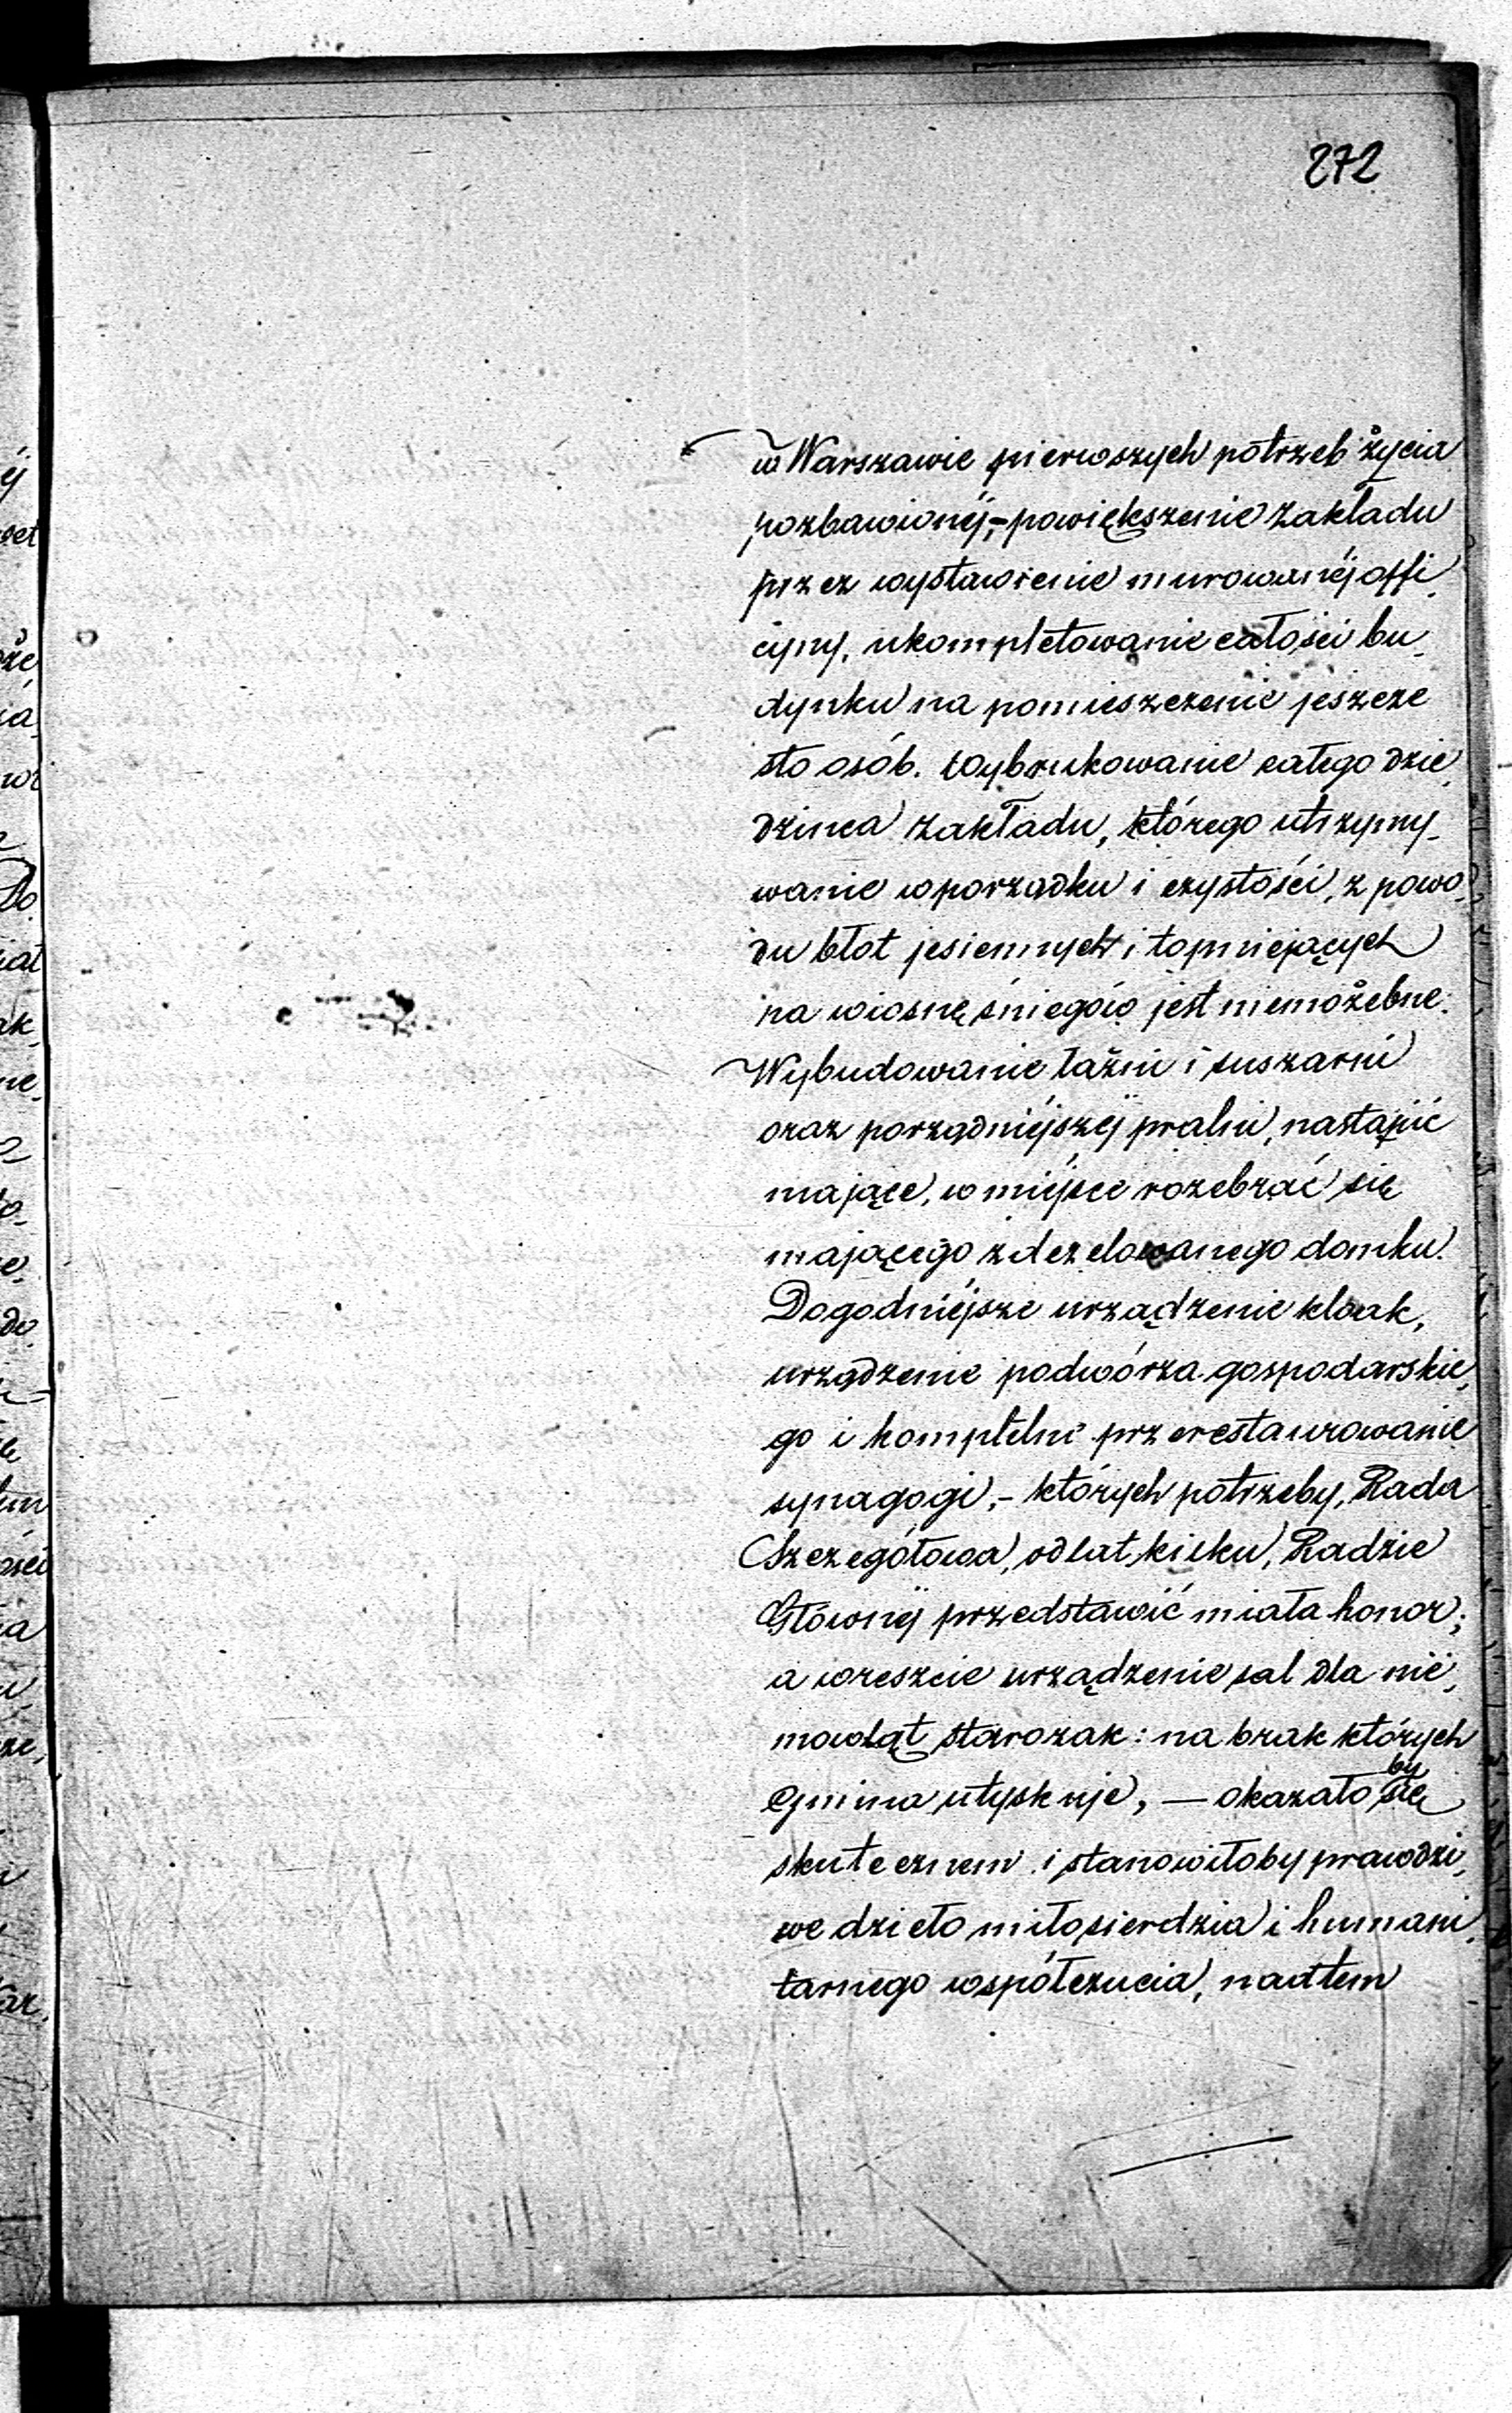 272
w Warszawie pierwszych potrzeb życia
pozbawionéj,- powiększenie Zakładu
przez wystawienie murowanéj offi_
cyny, ukompletowanie całości bu_
dynku na pomieszczenie jeszcze
sto osób. Wybrukowanie całego dzie_
dzinca Zakładu, którego utrzymy_
wanie w porządku i czystości, z powo_
du błot jesiennych i topniejących
na wiosnę śniegów jest niemożebne.
Wybudowanie łaźni i suszarni
oraz porządniéjszéj pralni, nastąpić
mające, w miéjsce rozebrać się
mającego zdezelowanego domku.
Dogodniéjsze urządzenie kloak,
urządzenie podwórza gospodarskie_
go i kompletne przerestaurowanie
synagogi,- których potrzeby, Rada
Szczegółowa, od lat kilku, Radzie
Głównéj przedstawić miała honor;
a wreszcie urządzenie sal dla nie_
mowląt starozak: na brak których
Gmina utyskuje, — okazało się
by
skutecznem i stanowiłoby prawdzi_
we dzieło miłosierdzia i humani_
tarnego współczucia, nadtem